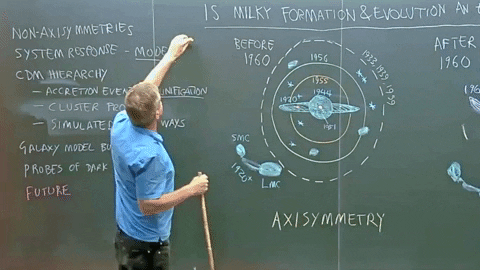 IS MILKY FORMATION & EVOLUTION AN
NON-AXISYMMETRIES
SYSTEM RESPONSE - MODE
CDM HIERARCHY
- ACCRETION EVEN UNIFICATION
- CLUSTER PRO
- SIMULATED WAYS
GALAXY MODEL BU
PROBES OF DARK
FUTURE
BEFORE
1960
1956
1955
1944
1951
SMC
LMC
AXISYMMETRY
AFTER
1960